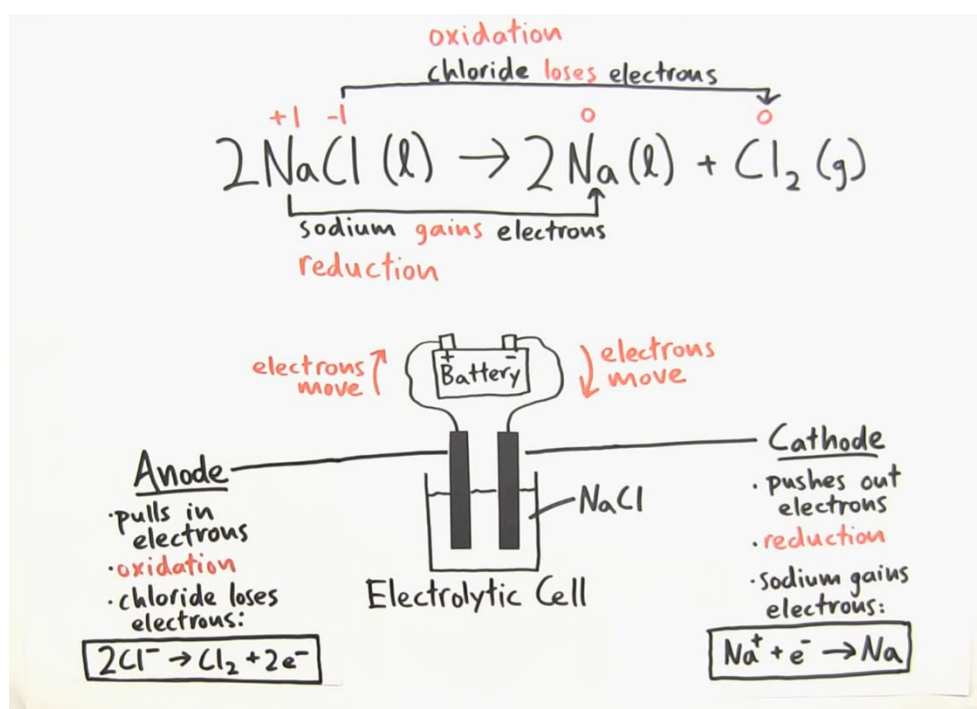 oxidation
chloride loses electrons
+1 -1 0 0
2NaCl (l) → 2Na(l) + Cl₂ (g)
sodium gains electrons
reduction
electrons
move
+ -
Battery
electrons
move
Anode
·pulls in
electrons
·oxidation
·chloride loses
electrons:
2Cl⁻ → Cl₂ + 2e⁻
NaCl
Electrolytic Cell
Cathode
· pushes out
electrons
· reduction
·sodium gains
electrons:
Na⁺ + e⁻ → Na